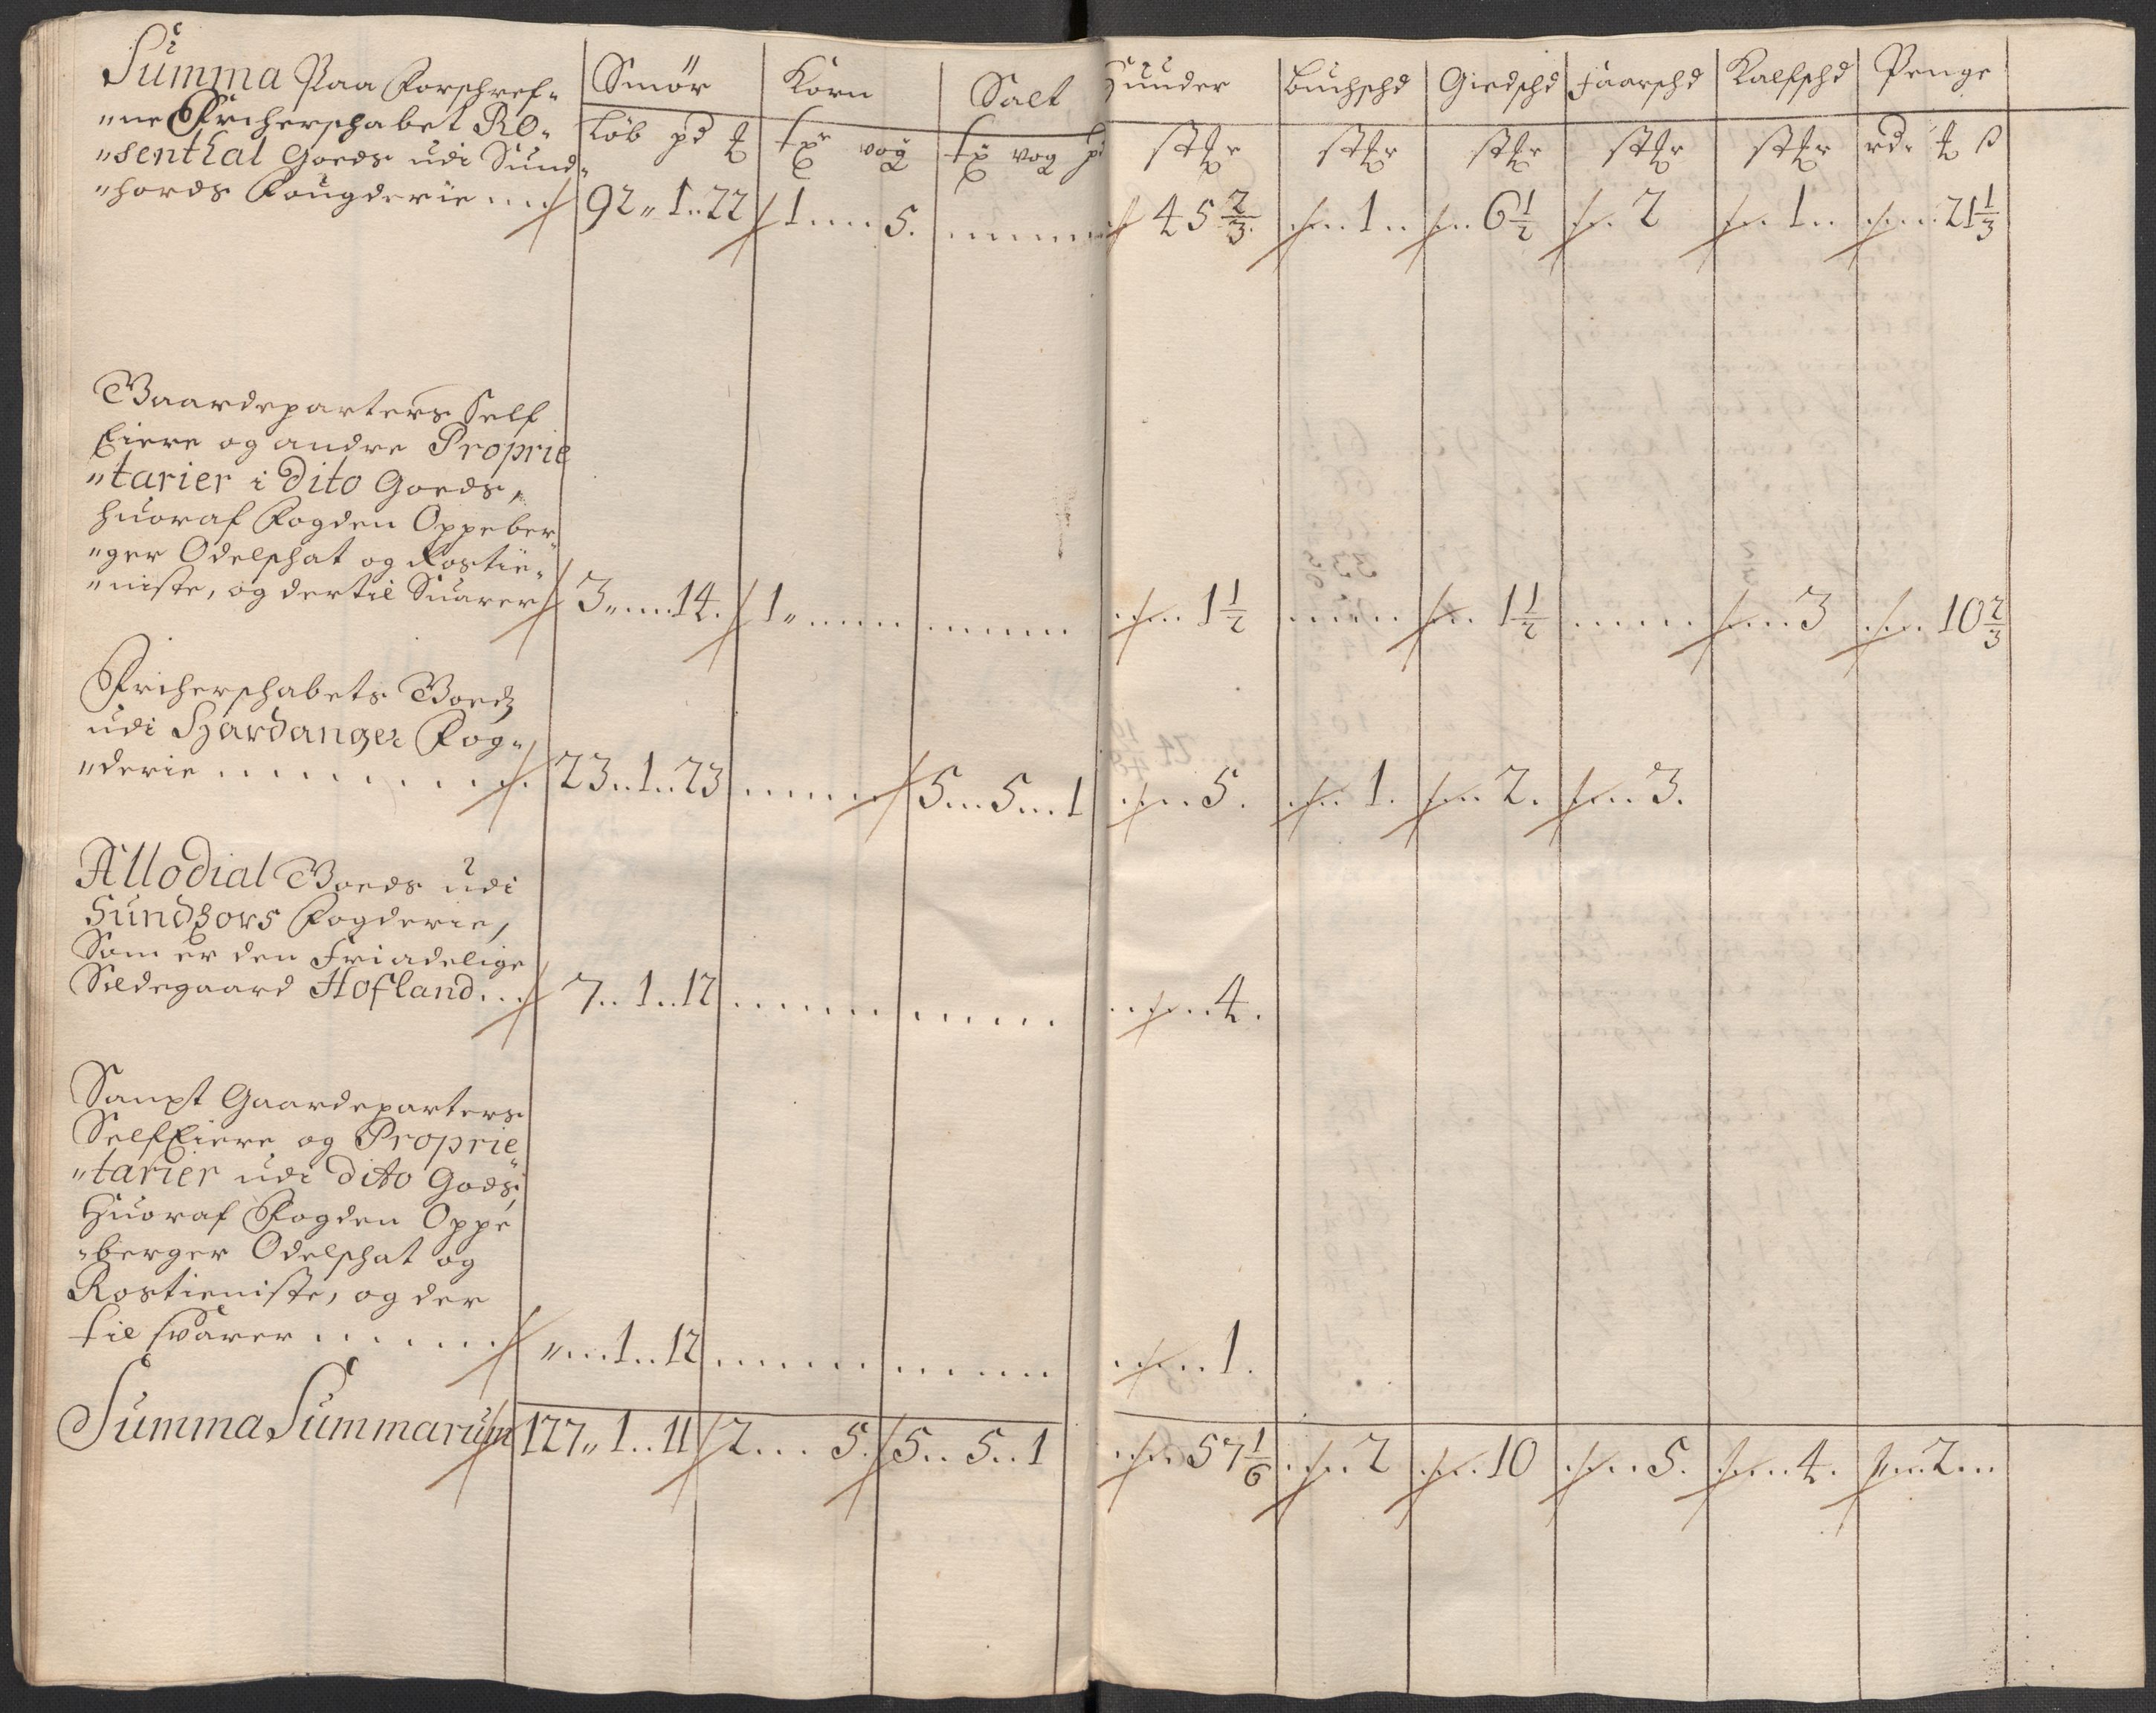 Summa Paa Forschref-
"ne Friherschabet Ro-
"senthal Goeds udi Sund-
"hords Fougderie
Smør Korn Salt Huuder Buchschd Giedschd Faarschd Kalfschd Penge
Løb pd ℔ tr vog t vog pd stkr stkr stkr stkr stkr rdr ℔ ß
92 " 1 .. 22 1 .... 5. ........ 45 2/3 1 .. 6 1/2 2 1 .. 21 1/3
Gaardeparters Self
Eiere og andre Proprie
"tarier i Dito Goeds,
huoraf Fogden Oppeber-
"ger Odelschat og Rostie-
"niste, og dertil Suarer 3 " .... 14. 1 " ..... ....... 1 1/2 ..... 1 1/2 ..... 3 10 2/3
Friherschabets Goeds
udi Hardanger Fog-
"derie ......... 23 .. 1 .. 23 ..... 5 ... 5 ... 1 5. 1. 2. 3.
Allodial Goeds udi
Sundhors Fogderie,
Som er den Friadelige
Sædegaard Hofland ... 7 .. 1 .. 12 ....... ...... 4.
Sampt Gaardeparters
SelfEiere og Proprie
"tarier udi Dito Gods,
Huoraf Fogden Oppe
-berger Odelschat og
Rostieniste, og der
til svarer ...... " ... 1 .. 12 ....... ...... 1.
Summa Summarum 127 " 1 .. 11 2 ... 5. 5 .. 5 .. 1 57 1/6 2 10 5. 4. 2 ...